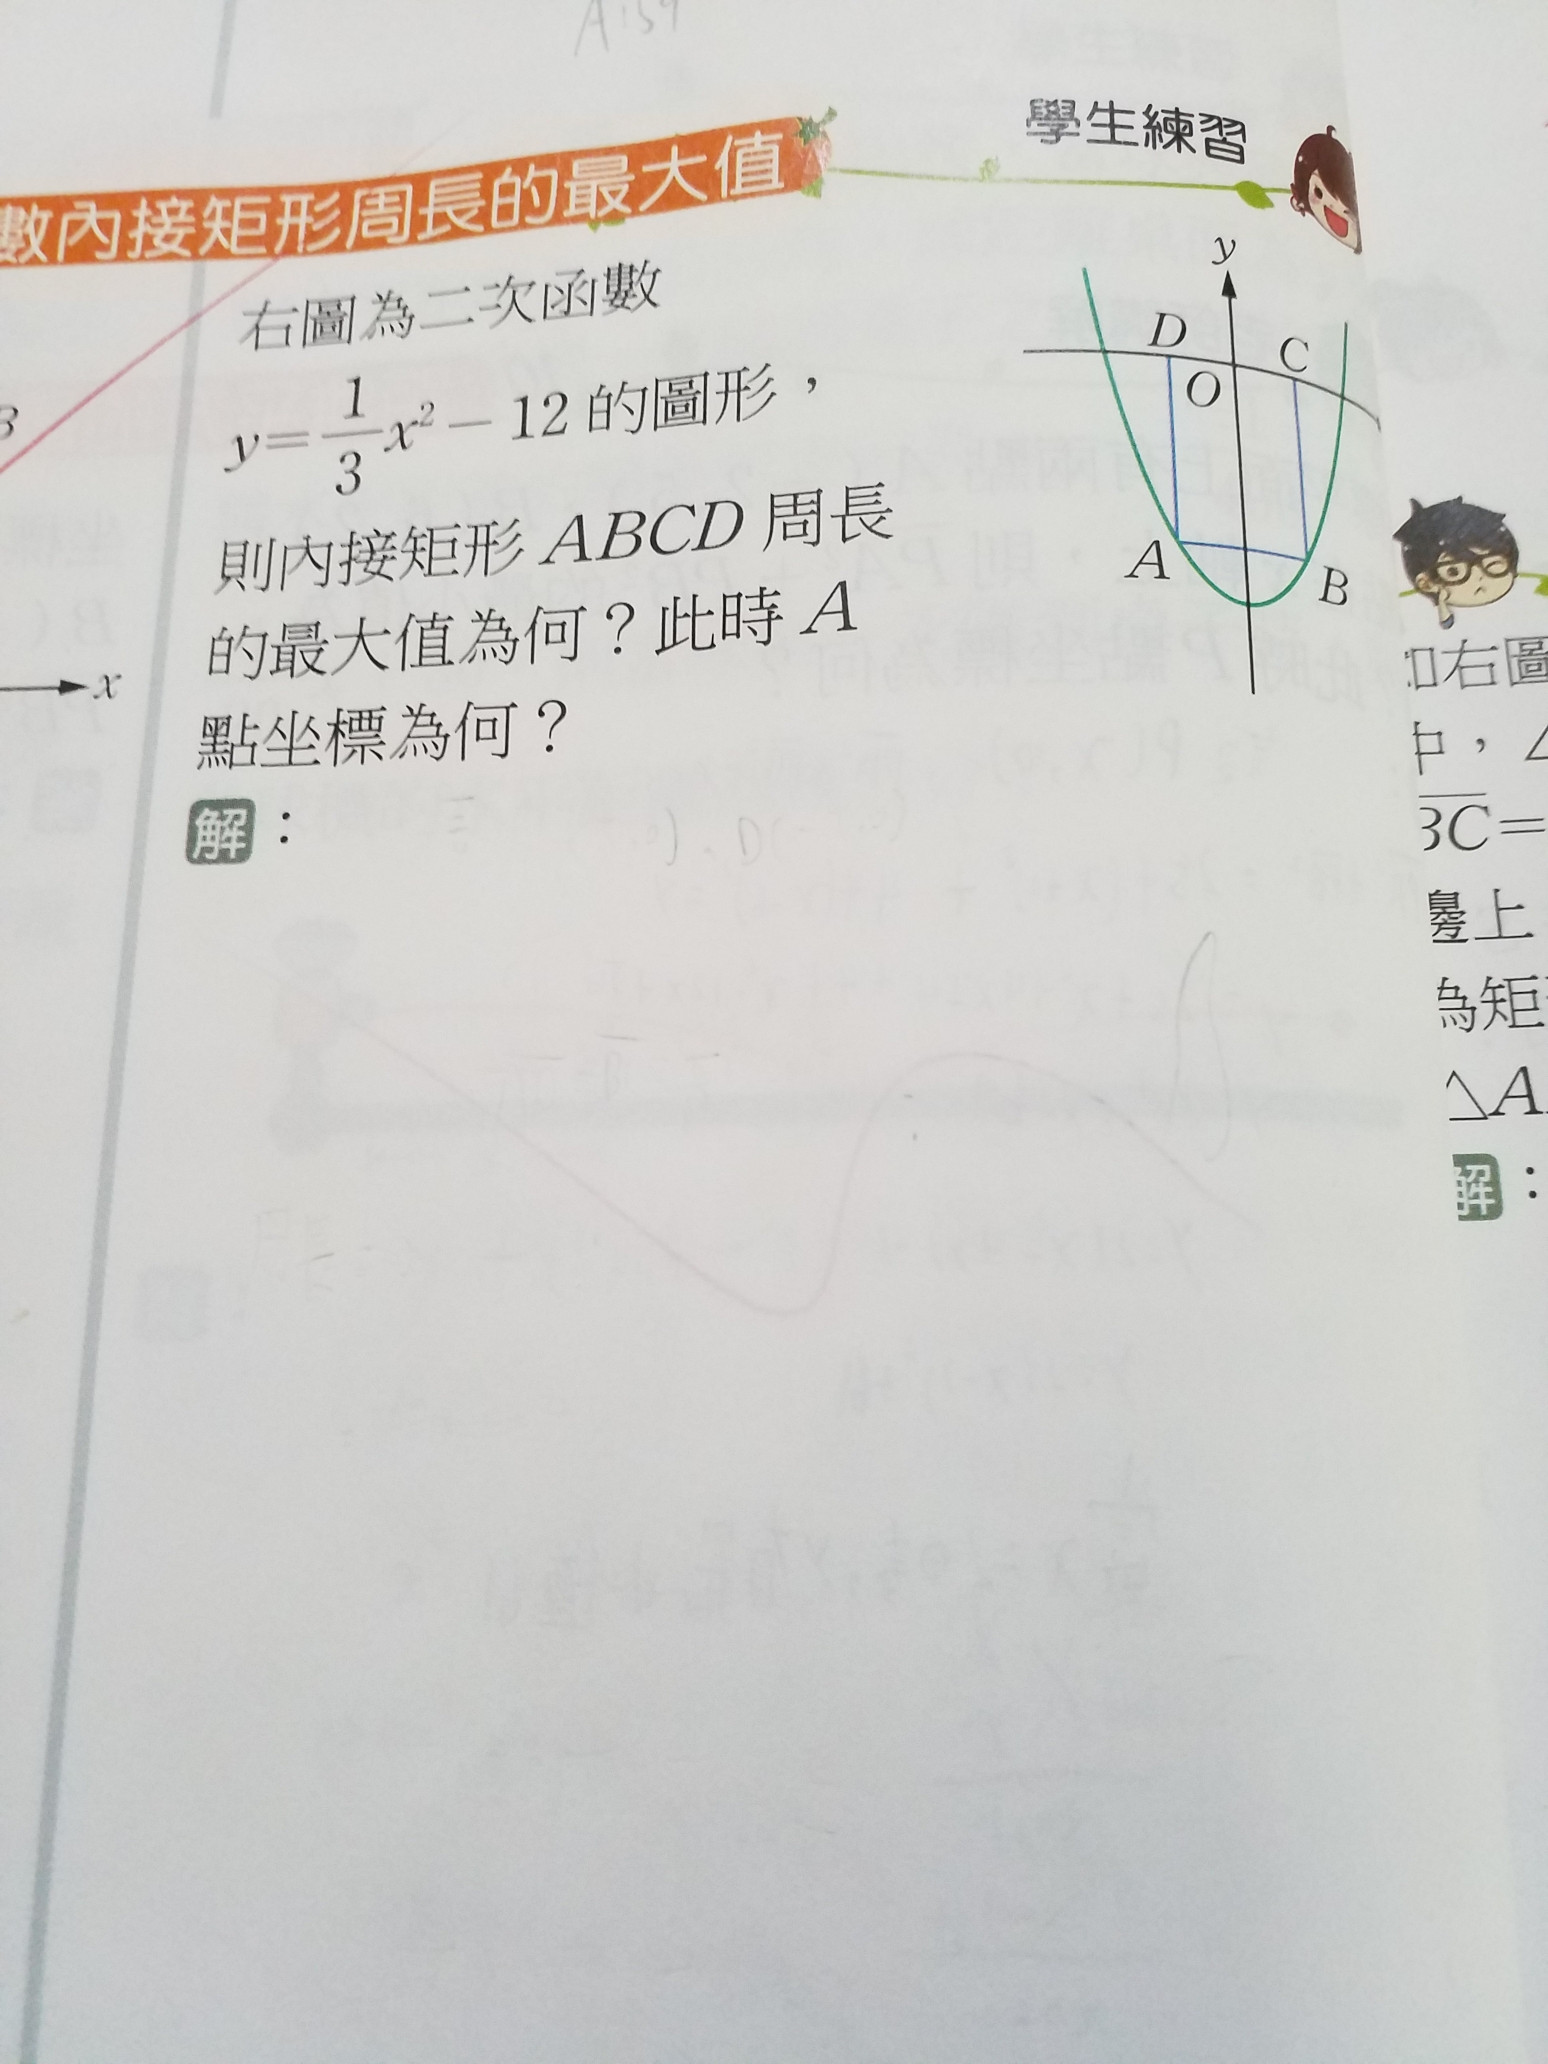 A:59
學生練習
數內接矩形周長的最大值
右圖為二次函數
y=\frac{1}{3}x²－12 的圖形，
則內接矩形 ABCD 周長
的最大值為何？此時 A
點坐標為何？
解：
y
D
C
O
A
B
x
如右圖
中，∠
BC=
邊上
為矩形
△A
解：